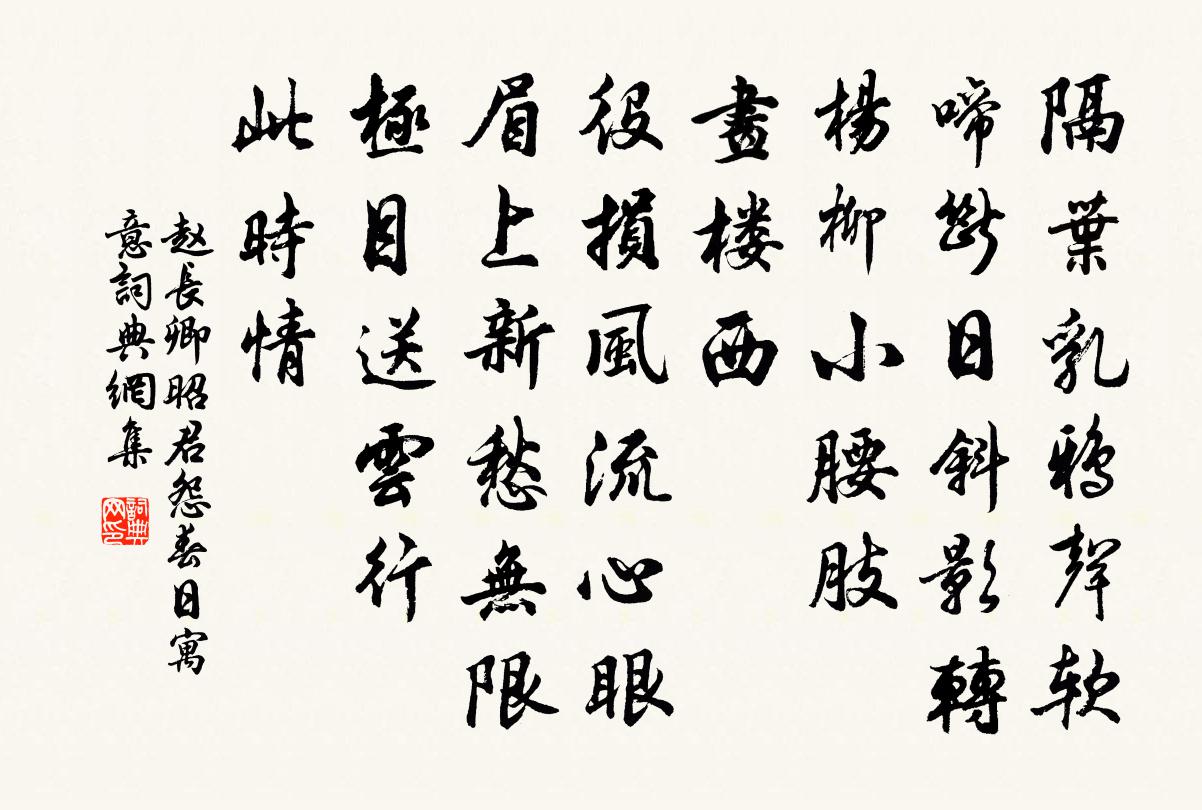 隔葉乳鴉聲软
啼斷日斜影轉
楊柳小腰肢
畫楼西
役損風流心眼
眉上新愁無限
極目送雲行
此時情
赵長卿昭君怨春日寓
意詞典網集
詞典
网印